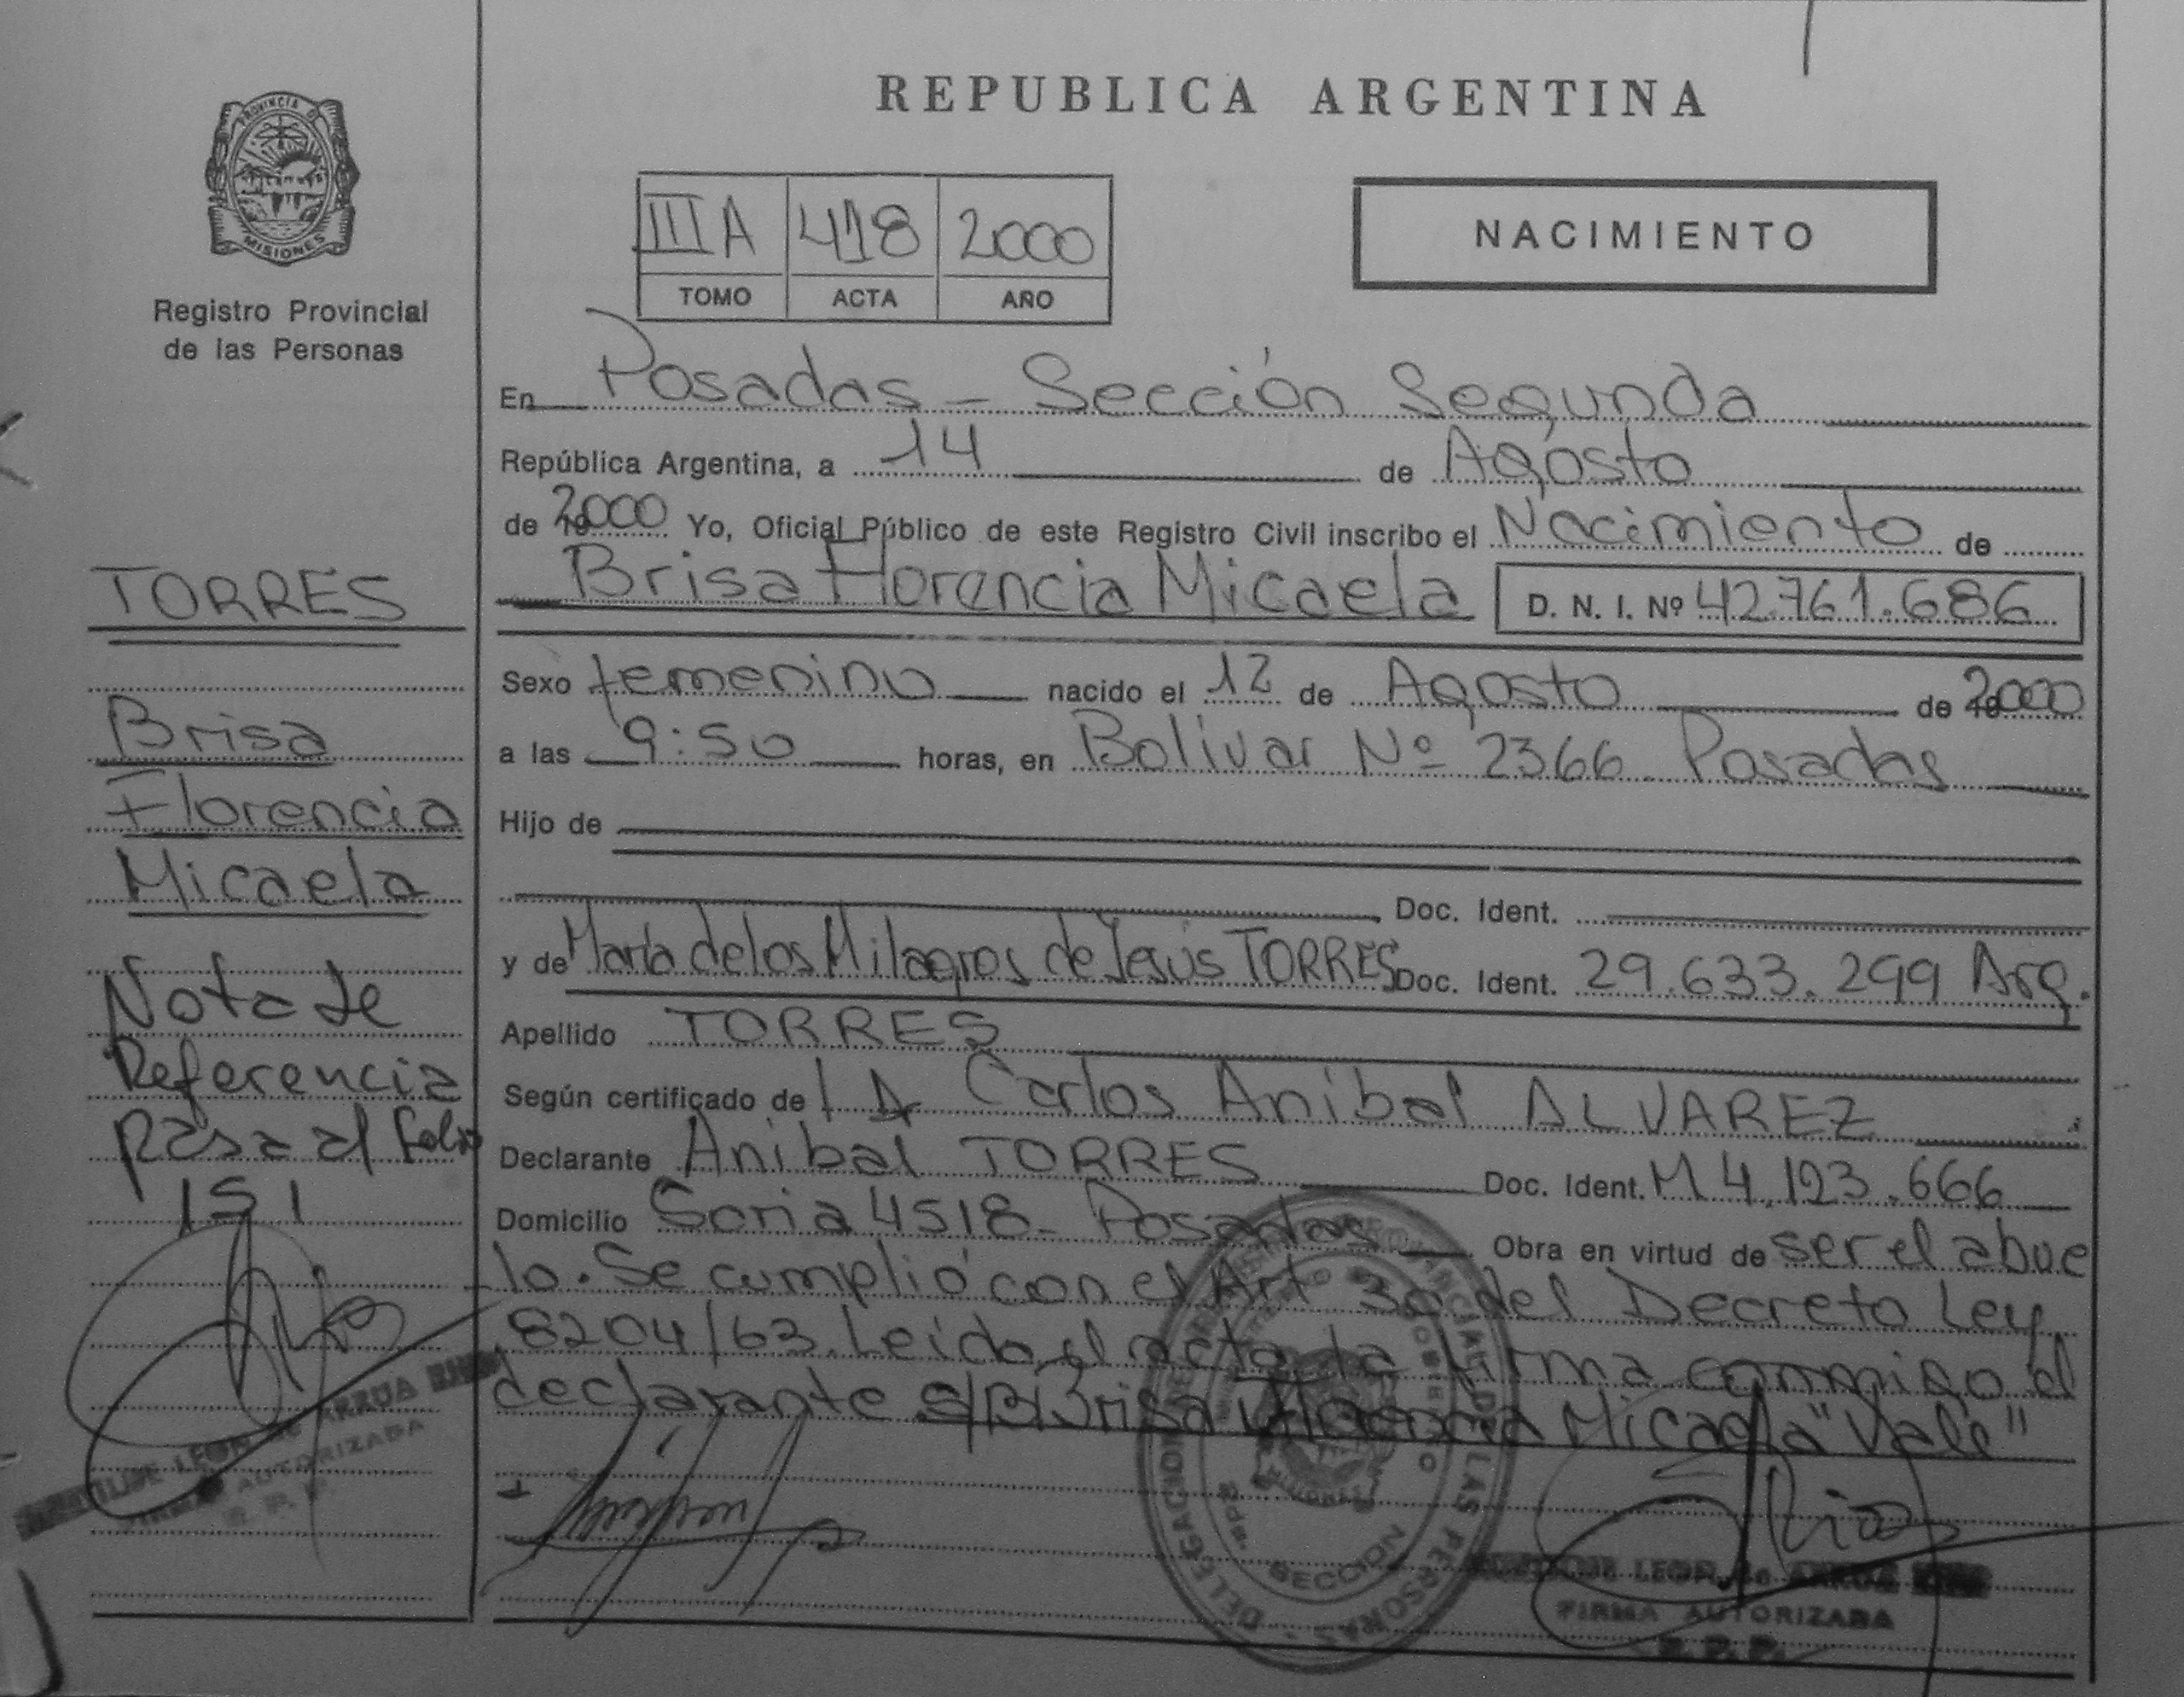 REPUBLICA ARGENTINA
PROVINCIA D
MISIONES
Registro Provincial
de las Personas
IIIA 418 2000
TOMO ACTA AÑO
NACIMIENTO
En Posadas - Sección Segunda
República Argentina, a 14 de Agosto
de 2000 Yo, Oficial Público de este Registro Civil inscribo el Nacimiento de
Brisa Florencia Micaela D. N. I. Nº 42.761.686
Sexo femenino nacido el 12 de Agosto de 2000
a las 9:50 horas, en Bolivar Nº 2366 Posadas
Hijo de
Doc. Ident.
y de María de los Milagros de Jesús TORRES Doc. Ident. 29.633.299 Arg.
Apellido TORRES
Según certificado de Carlos Anibal ALVAREZ
Declarante Anibal TORRES Doc. Ident. M 4.123.666
Domicilio Soria 4518 - Posadas Obra en virtud de ser el abue
lo. Se cumplió con el Art 30 del Decreto Ley
8204/63. Leido el acta la firma conmigo el
declarante S/R Brisa Florencia Micaela "Vale"
TORRES
Brisa
Florencia
Micaela
Nota de
Referencia
Pasa al folio
151
ARRUA
FIRMA AUTORIZADA
R. P. P.
DELEGACION
DE LAS PERSONAS
SECCION
MISIONES
LEON de ARRUA
FIRMA AUTORIZADA
R. P. P.